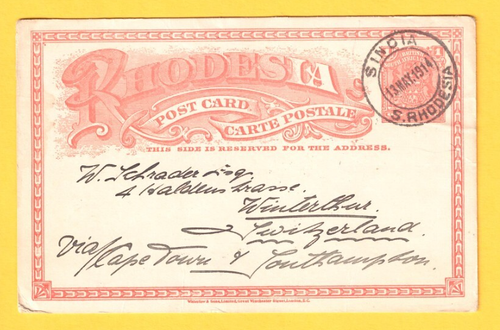 RHODESIA
POST CARD
CARTE POSTALE
THIS SIDE IS RESERVED FOR THE ADDRESS.
SINOIA
13 MAY 1914
S. RHODESIA
W. Schrader Esq.
4 Haldenstrasse.
Winterthur.
Switzerland.
via Cape Town & Southampton.